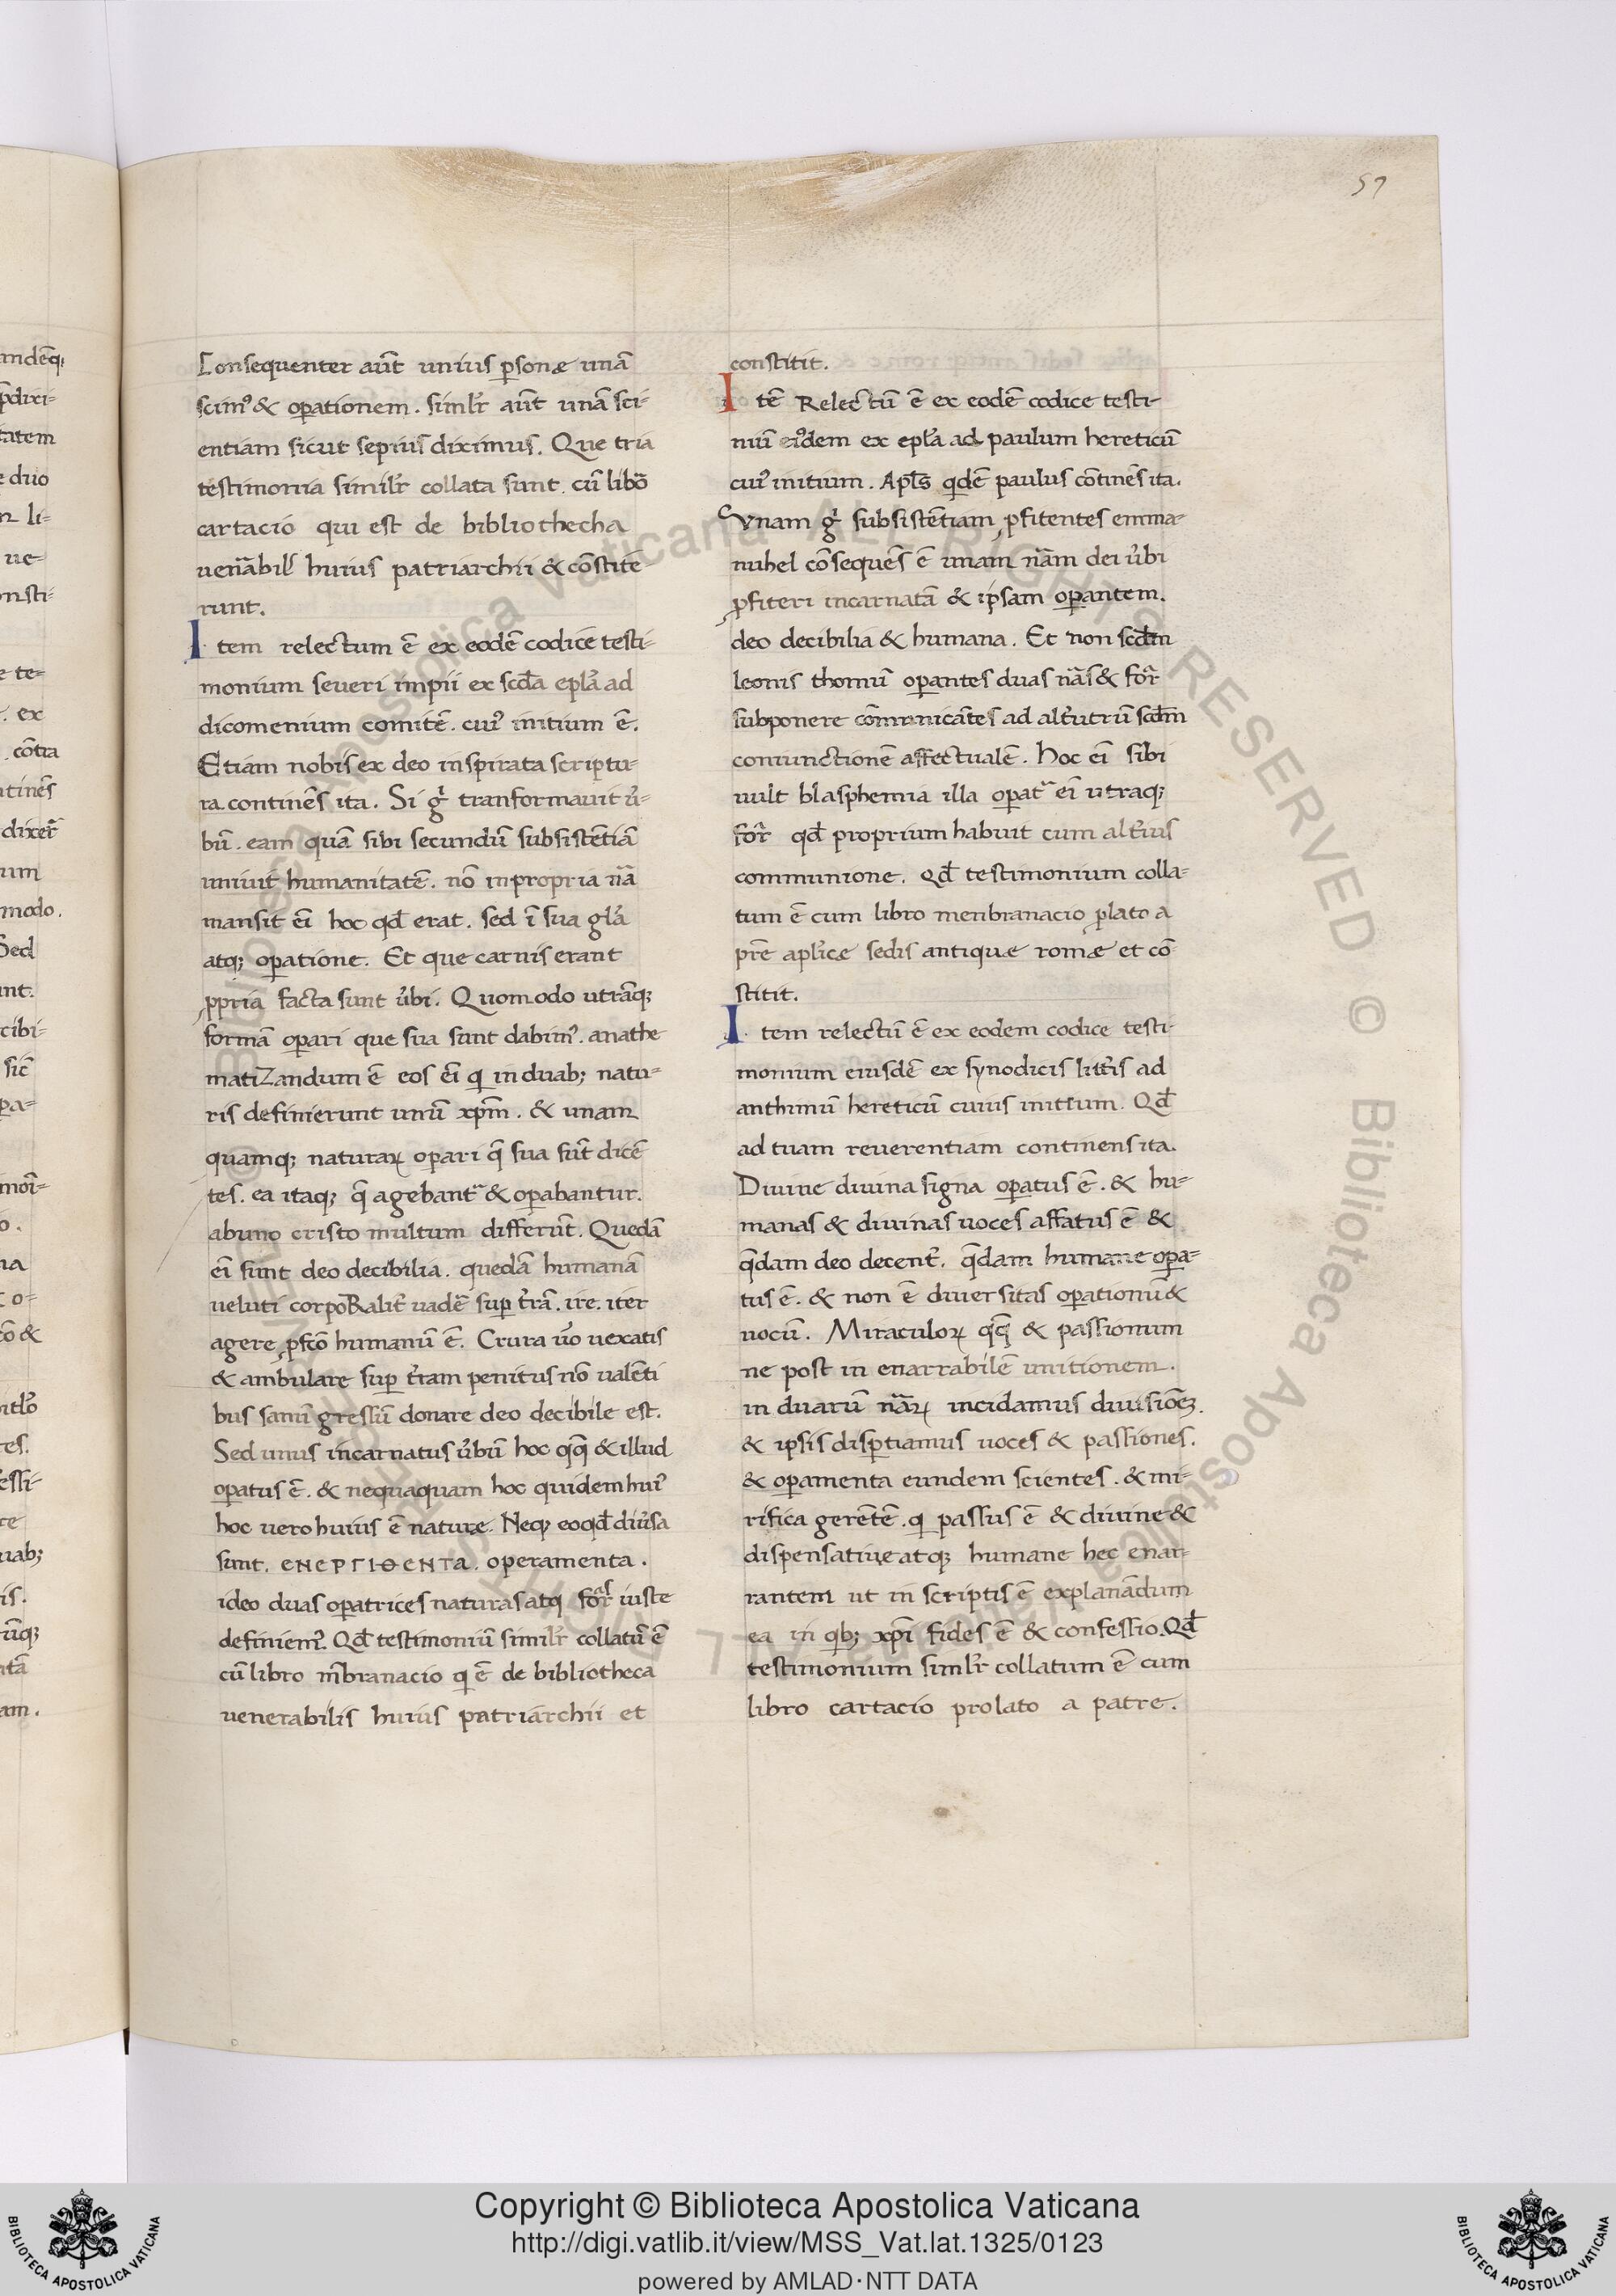 57
Consequenter aut̄ unius p̱sonæ unā
scim᾽ & op̱ationem. simlr̄ aut̄ unā sci-
entiam sicut sepius diximus. Que tria
testimonia similr̄ collata sunt. cū libō
cartacio qui est de bibliothecha
uen̄abil᾽ huius patriarchii & cōstite
runt.
Item relectum ē ex eodē codice testi-
monium seueri impii ex scd̄a epl̄a ad
dicomenium comitē. cui᾽ initium ē.
Etiam nobis ex deo inspirata scriptu-
ra continēs ita. Si gͥ tranformauit u᾽-
bū. eam quā sibi secundū subsistētiā
uniuit humanitatē. nō inpropria nā
mansit ei̅ hoc qd̄ erat. sed ī sua gl̄a
atq; op̱atione. Et que carnis erant
ꝓpria facta sunt u᾽bi. Quomodo utrāq;
formā op̱ari que sua sunt dabim᾽. anathe
matiZandum ē eos ei̅ q in duab; natu-
ris definierunt unū xp̄m. & unam
quamq; naturaꝝ op̱ari q̄ sua sūt dicē
tes. ea itaq; q̄ agebant᾽ & op̱abantur.
abuno cristo multum differūt. Quedā
ei̅ sunt deo decibilia. quedā humanā
ueluti corpoRalit᾽ uadē sup̱ t᾽rā. ire. iter
agere ꝓfcō humanū ē. Crura u᾽o uexatis
& ambulare sup̱ t᾽ram penitus nō ualēti
bus sanū gressū donare deo decibile est.
Sed unus incarnatus u᾽bū hoc qq̄ & illud
op̱atus ē. & nequaquam hoc quidem hui᾽
hoc uero huius ē naturæ. Neq; eoqd̄ diu᾽sa
sunt. ΕΝΕΡΓΙΘΕΝΤΑ. operamenta.
ideo duas op̱atrices naturas atq forᵃ̄s iuste
definiem᾽. Qd̄ testimoniū similr̄ collatū ē
cū libro m̄branacio q ē de bibliotheca
uenerabilis huius patriarchii et
constitit.
Itē Relectū ē ex eodē codice testi-
niū ei᾽dem ex epl̄a ad paulum hereticū
cui᾽ initium. Apl̄s qdē paulus cōtinēs ita.
Vnam gͥ subsistētiam ꝓfitentes emma-
nuhel cōsequēs ē unam nām dei u᾽bi
ꝓfiteri incarnatā & ipsam op̱antem.
deo decibilia & humana. Et non scdm̄
leonis thomū op̱antes duas nās & for̄
subponere cōmunicātes ad alt᾽utrū scdm̄
coniunctionē affectualē. Hoc ei̅ sibi
uult blasphemia illa op̱at᾽ ei̅ utraq;
for̄ qd̄ proprium habuit cum alt᾽ius
communione. Qd̄ testimonium colla-
tum ē cum libro menbranacio ꝓlato a
prē apl̄icæ sedis antiquæ romæ et cō
stitit.
Item relectū ē ex eodem codice testi-
monium eiusdē ex synodicis litt᾽is ad
anthimū hereticū cuius initium. Qd̄
ad tuam reuerentiam continens ita.
Diuine diuina signa op̱atus ē. & hu-
manas & diuinas uoces affatus ē &
q̄dam deo decent᾽. q̄dam humane op̱a-
tus ē. & non ē diuersitas op̱ationū &
uocū. Miraculoꝝ qq̄ & passionum
ne post in enarrabilē unitionem.
in duarū nāꝝ incidamus diuisiōeȝ.
& ipsis disp̱tiamus uoces & passiones.
& op̱amenta eundem scientes. & mi-
rifica gerētē. q passus ē & diuine &
dispensatiue atq; humane hec enar-
rantem ut in scriptis ē explanādum
ea in qb; xp̄i fides ē & confessio. Qd̄
testimonium simlr̄ collatum ē cum
libro cartacio prolato a patre.
Copyright © Biblioteca Apostolica Vaticana
http://digi.vatlib.it/view/MSS_Vat.lat.1325/0123
powered by AMLAD·NTT DATA